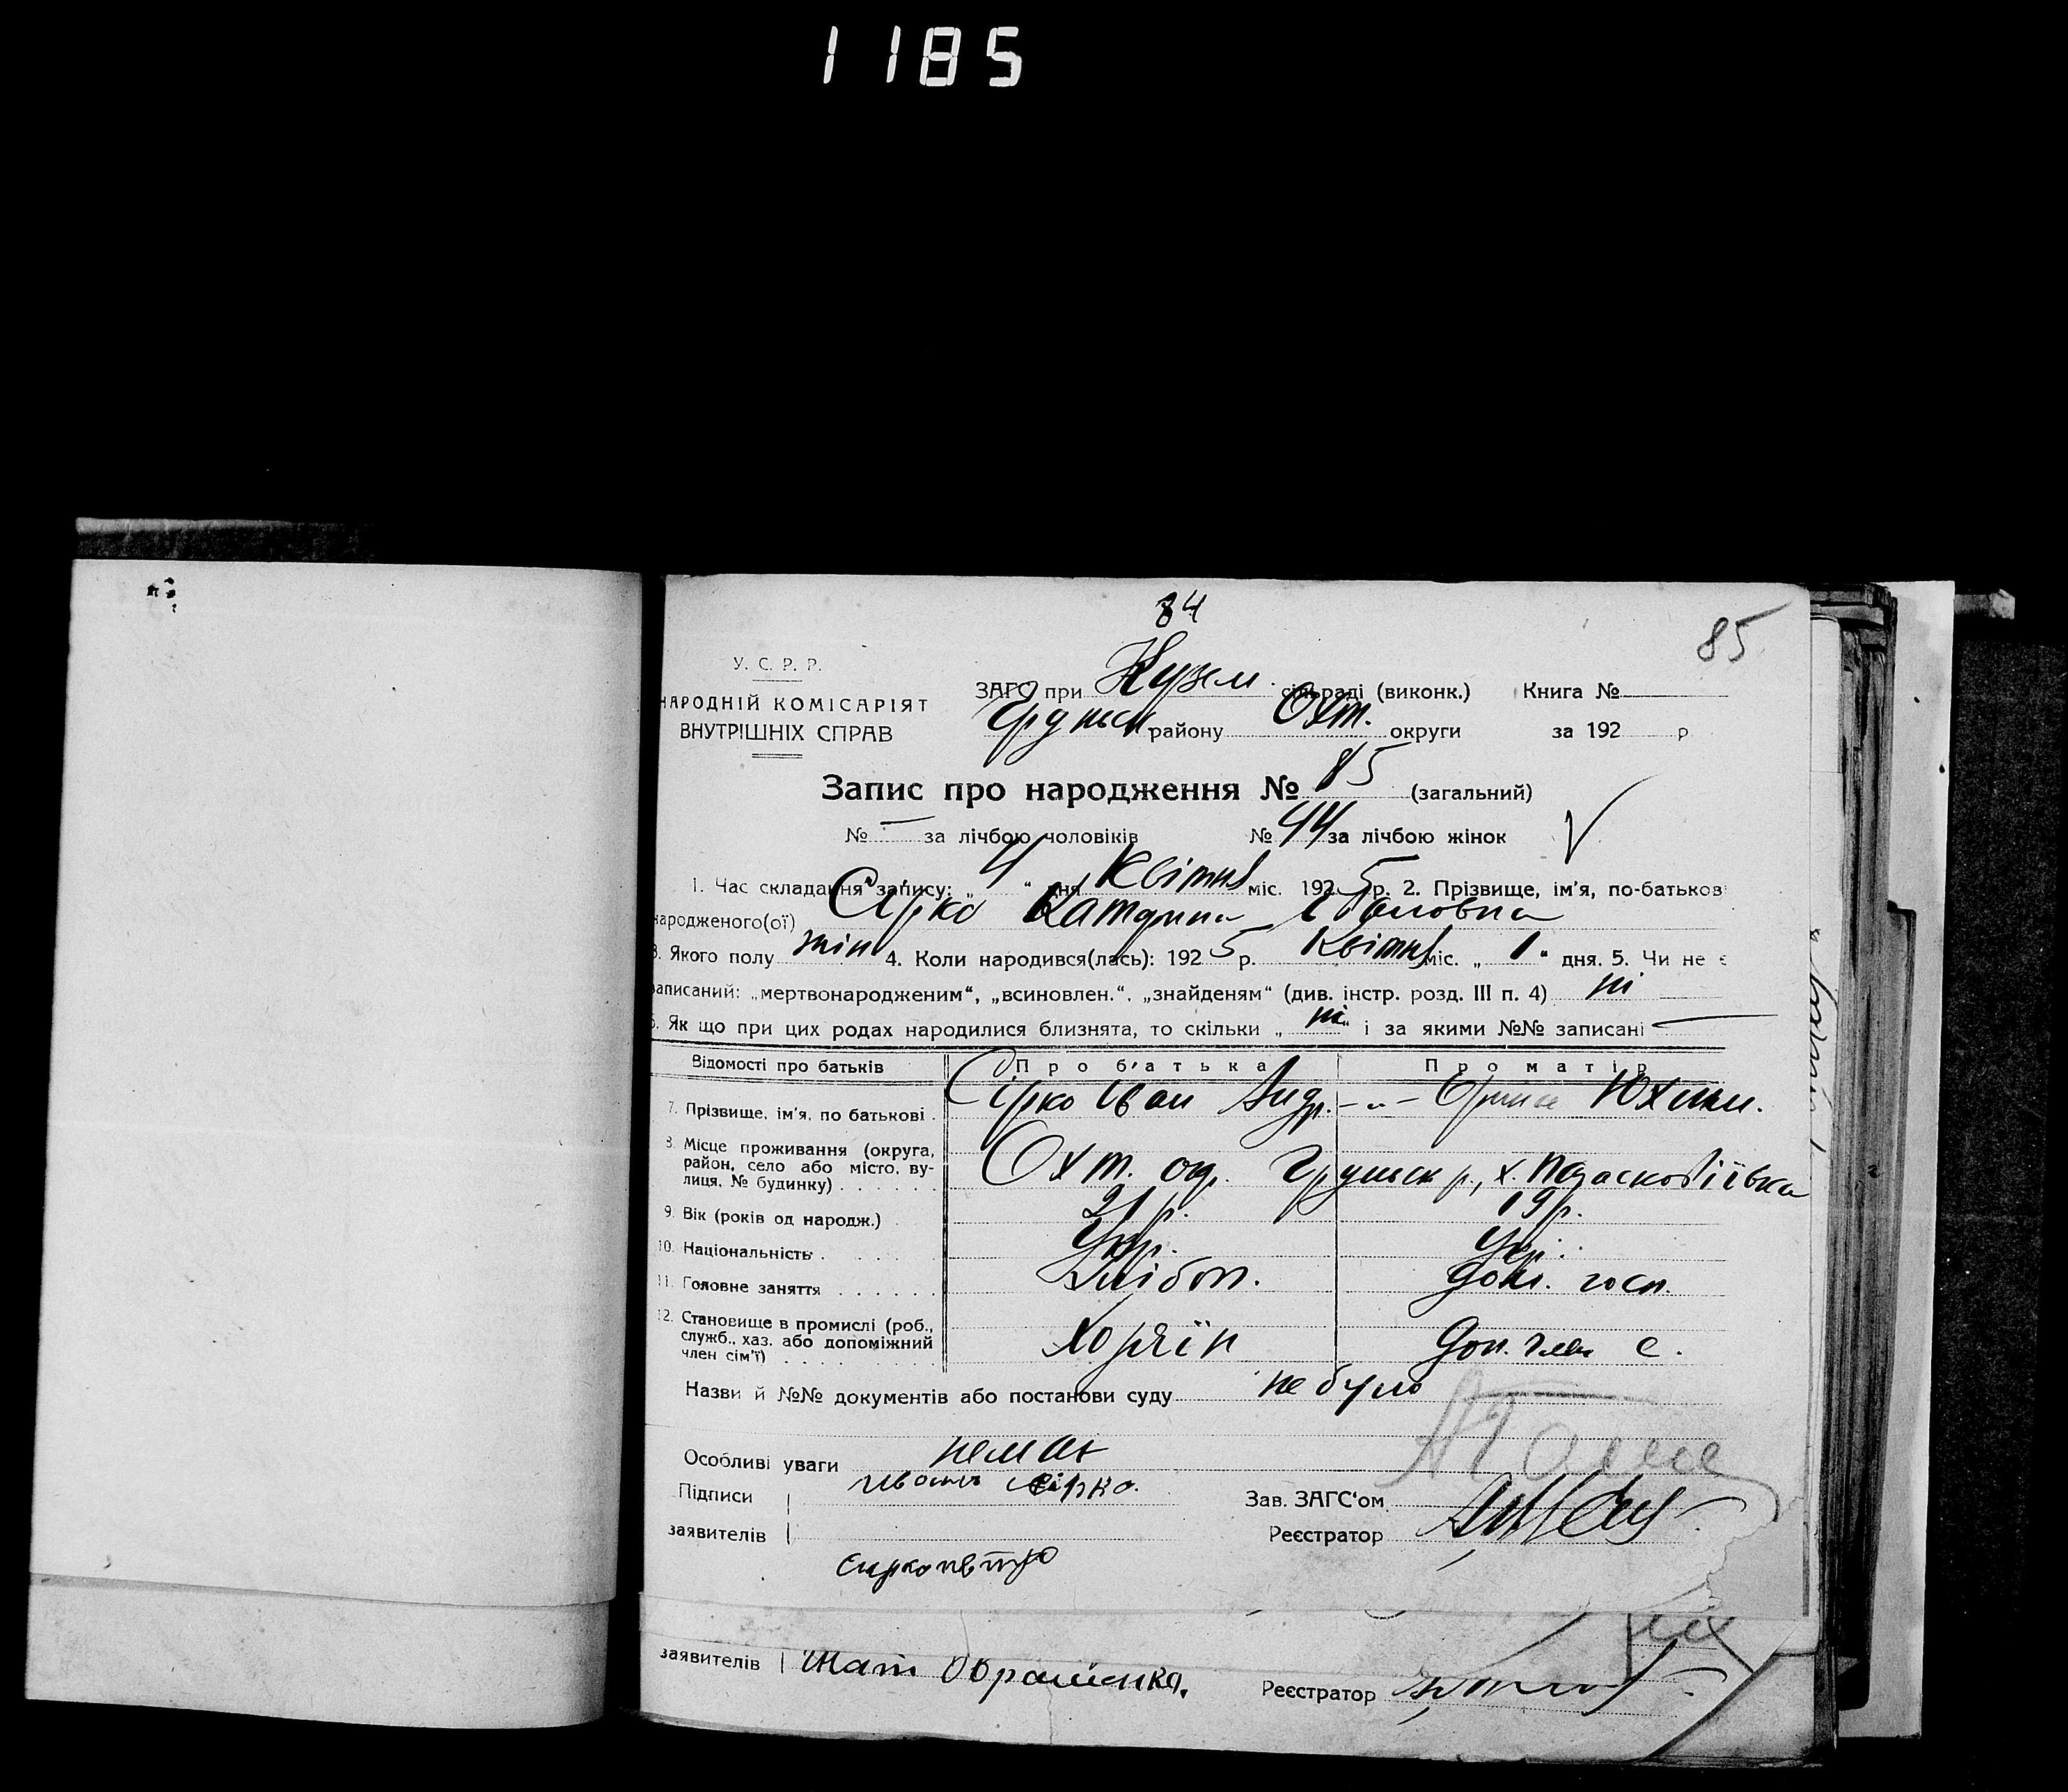 1185
84
85
У. С. Р. Р.
НАРОДНІЙ КОМІСАРІЯТ
ВНУТРІШНІХ СПРАВ
ЗАГС при Кузем. сільраді (виконк.) Книга №
Груньск району Охт. округи за 192 р
Запис про народження № 85 (загальний)
№ — за лічбою чоловіків № 44 за лічбою жінок
1. Час складання запису: „4“ дня Квітня міс. 1925р. 2. Прізвище, ім'я, по-батькові
народженого(ої) Сірко Катерина Івановна
3. Якого полу жін 4. Коли народився(лась): 1925 р. Квітня міс. „1“ дня. 5. Чи не є
записаний: „мертвонародженим“, „всиновлен.“, „знайденям“ (див. інстр. розд. III п. 4) ні
6. Як що при цих родах народилися близнята, то скільки „ні“ і за якими №№ записані —
Відомості про батьків Про батька Про матір
7. Прізвище, ім'я, по батькові . Сірко Іван Андр. -„- Орина Юхим.
8. Місце проживання (округа,
район, село або місто, ву-
лиця, № будинку) . . . . . . Охт. ок. Груньск р., х.
9. Вік (років од народж.) 21 р. 19 р.
10. Національність . . . . . Укр. Укр.
11. Головне заняття . . . . . . Хлібоп. Дом. госп.
12. Становище в промислі (роб.,
служб., хаз. або допоміжний
член сім'ї) . . . . . . . . . Хозяїн Доп. член с.
Назви й №№ документів або постанови суду не було
Особливі уваги немає
Підписи Иван Сірко.
Зав. ЗАГС'ом
заявителів
Реєстратор
Сирко Петро
заявителів
Реєстратор